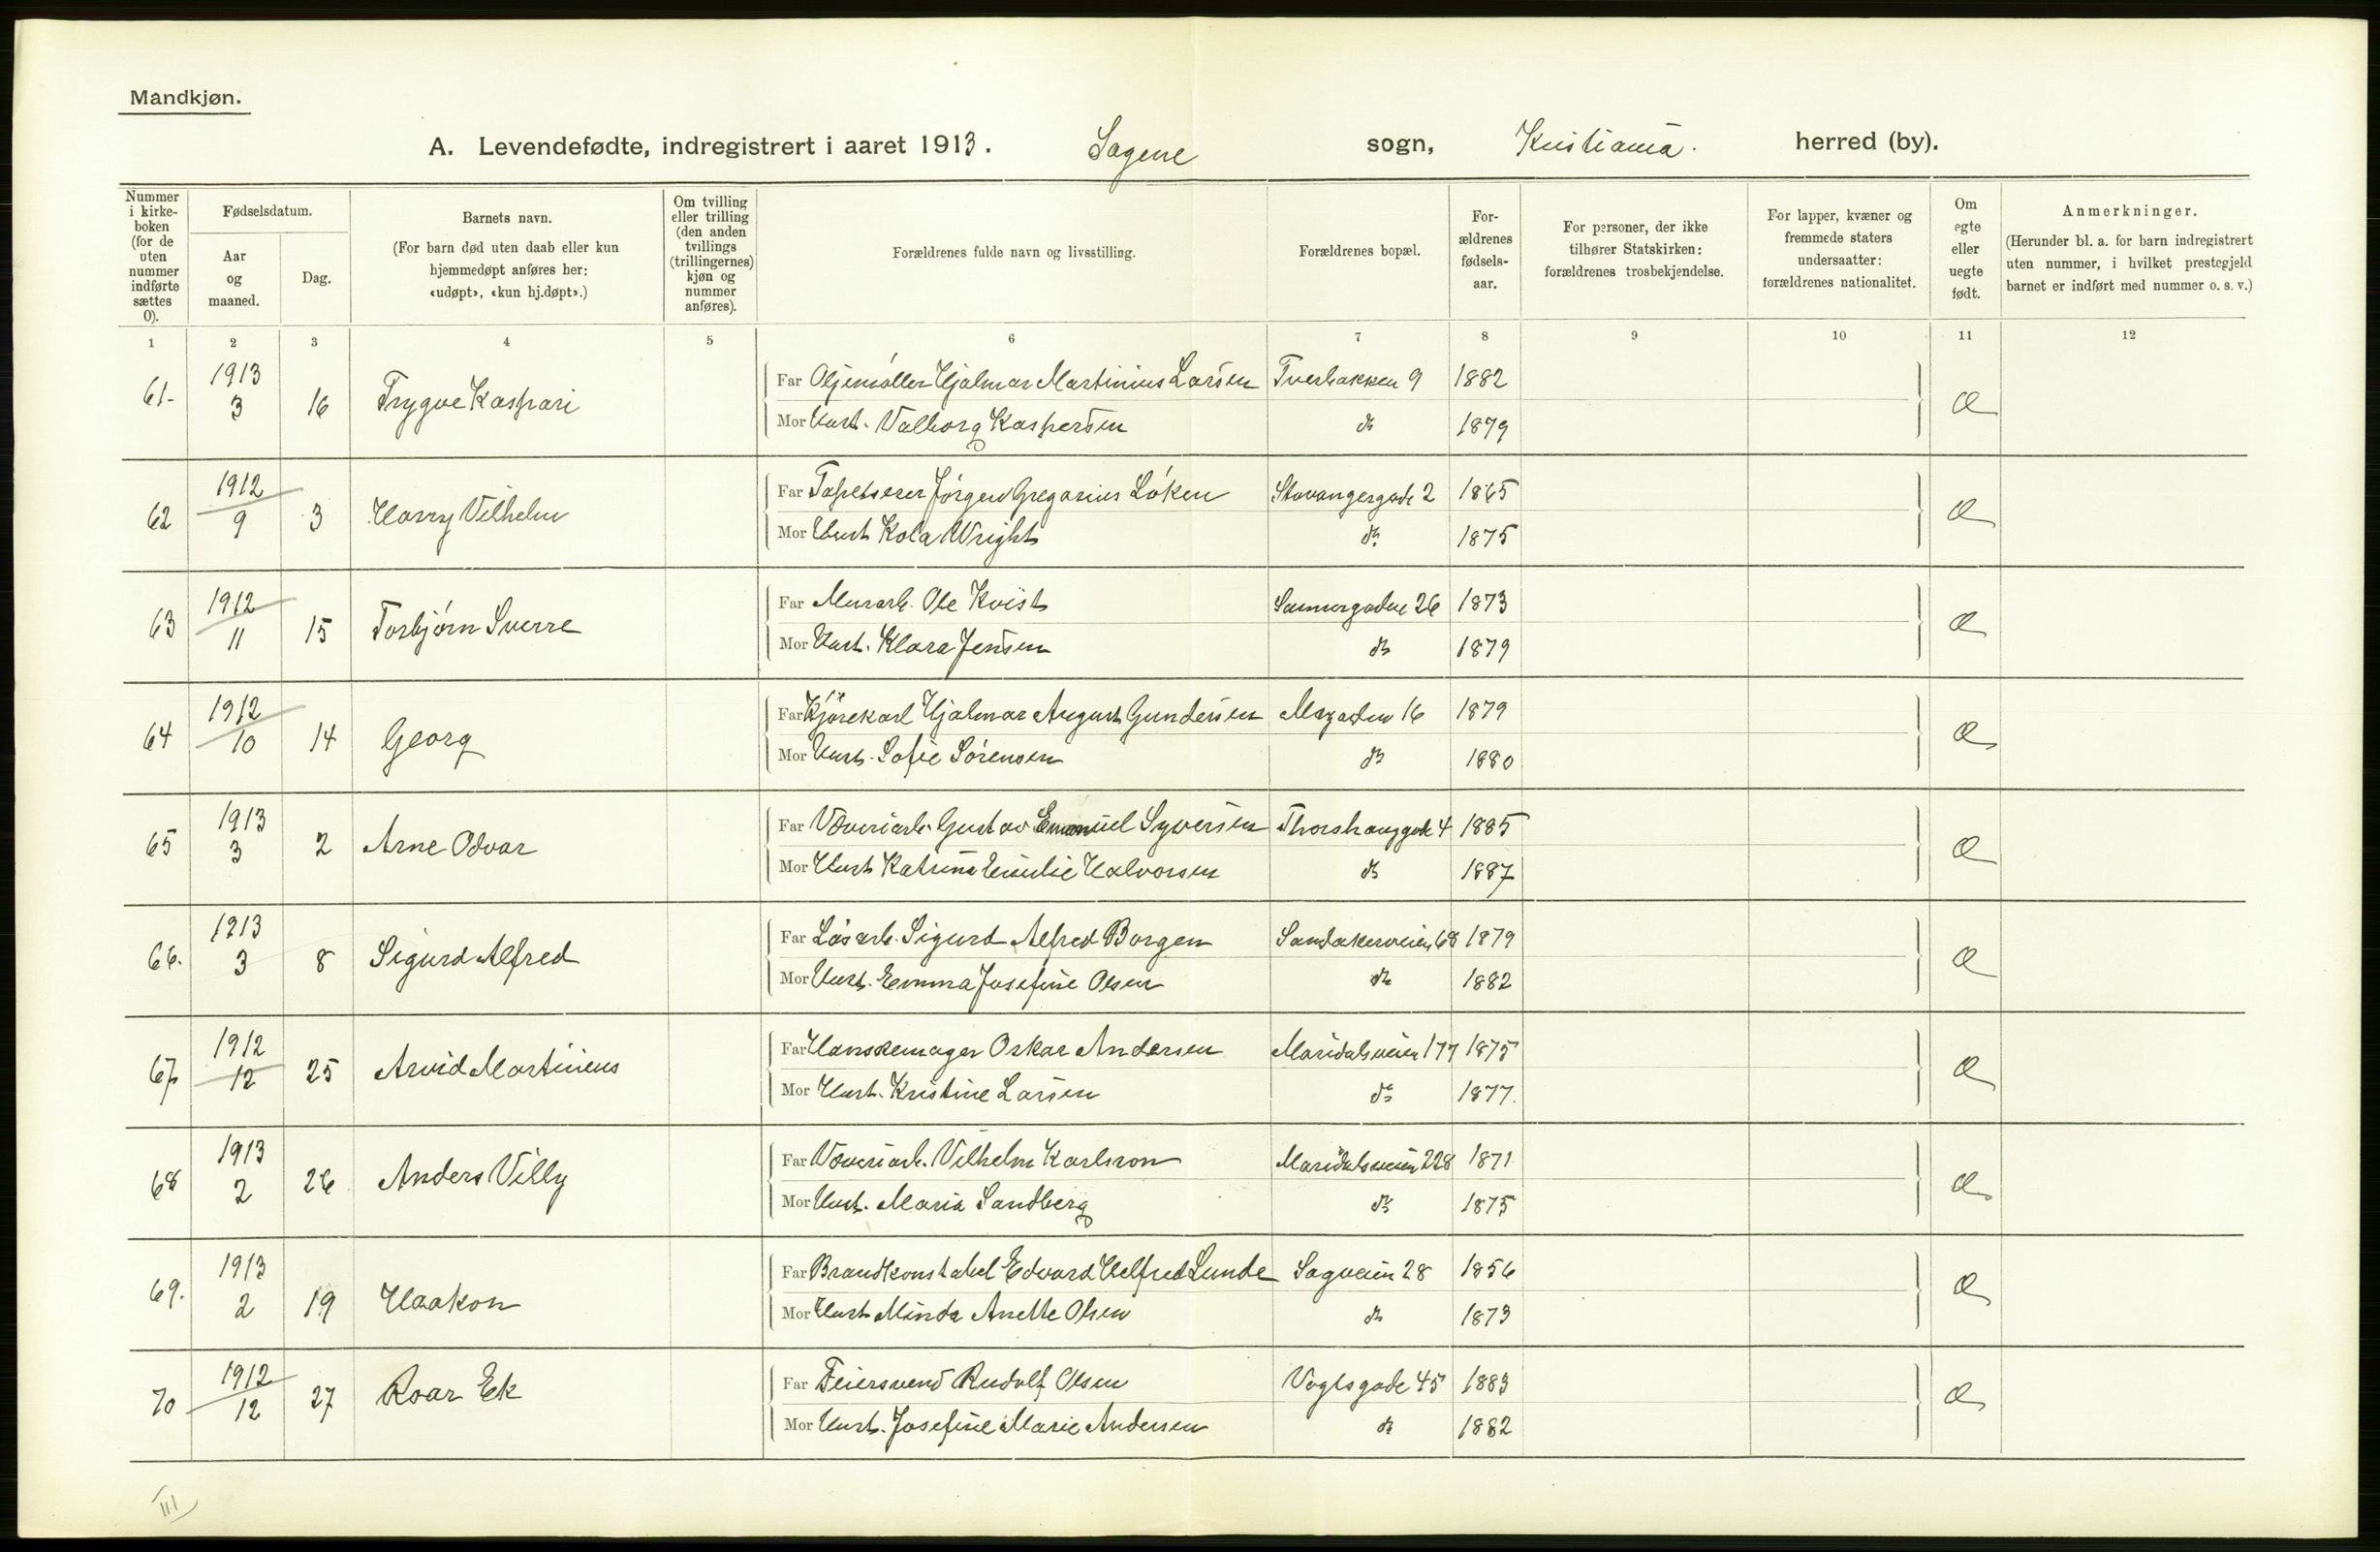 Mandkjøn.
A. Levendefødte, indregistrert i aaret 1913. Sagene sogn, Kristiania. herred (by).
Nummer i kirke-boken (for de uten nummer indførte sættes 0).
Fødselsdatum.
Aar og maaned.
Dag.
Barnets navn.
(For barn død uten daab eller kun hjemmedøpt anføres her: «udøpt», «kun hj.døpt».)
Om tvilling eller trilling (den anden tvillings (trillingernes) kjøn og nummer anføres).
Forældrenes fulde navn og livsstilling.
Forældrenes bopæl.
For-ældrenes fødsels-aar.
For personer, der ikke tilhører Statskirken: forældrenes trosbekjendelse.
For lapper, kvæner og fremmede staters undersaatter: forældrenes nationalitet.
Om egte eller uegte født.
Anmerkninger.
(Herunder bl. a. for barn indregistrert uten nummer, i hvilket prestegjeld barnet er indført med nummer o. s. v.)
1 2 3 4 5 6 7 8 9 10 11 12
61- 1913 3 16 Trygve Kaspari
Far Oljemøller Hjalmar Martinius Larsen Tverbakken 9 1882
Mor Hust. Valborg Kaspersen do 1879
62 1912 9 3 Harry Vilhelm
Far Tapetserer Jørgen Gregarius Løken Stavangergade 2 1865
Mor Hust Kola Wright do 1875
63 1912 11 15 Torbjørn Sverre
Far Murarb. Ole Kvist 26 1873
Mor Hust. Klara Jensen do 1879
64 1912 10 14 Georg
Far Kjørekarl Hjalmar August Gundersen 16 1879
Mor Hust. Sofie Sørensen do 1880
65 1913 3 2 Arne Odvar
Far Væveriarb. Gustav Emanuel Syversen Thorshauggade 4 1885
Mor Hust Katrine Emilie Halvorsen do 1887
66. 1913 3 8 Sigurd Alfred
Far Løsarb. Sigurd Alfred Borgen Sandakerveien 68 1879
Mor Hust. Emma Josefine Olsen do 1882
67 1912 12 25 Arvid Martinius
Far Hanskemager Oskar Andersen Maridalsveien 177 1875
Mor Hust. Kristine Larsen do 1877.
68 1913 2 26 Anders Villy
Far Væveriarb. Vilhelm Karlsson Maridalsveien 228 1871
Mor Hust. Maria Sandberg do 1875
69. 1913 2 19 Haakon
Far Brandkonstabel Edvard Helfred Lunde Sagveien 28 1856
Mor Hust Minda Anette Olsen do 1873
70 1912 12 27 Roar Ek
Far Feiersvend Rudolf Olsen Vogtsgade 45 1883
Mor Hust. Josefine Marie Andersen do 1882
III